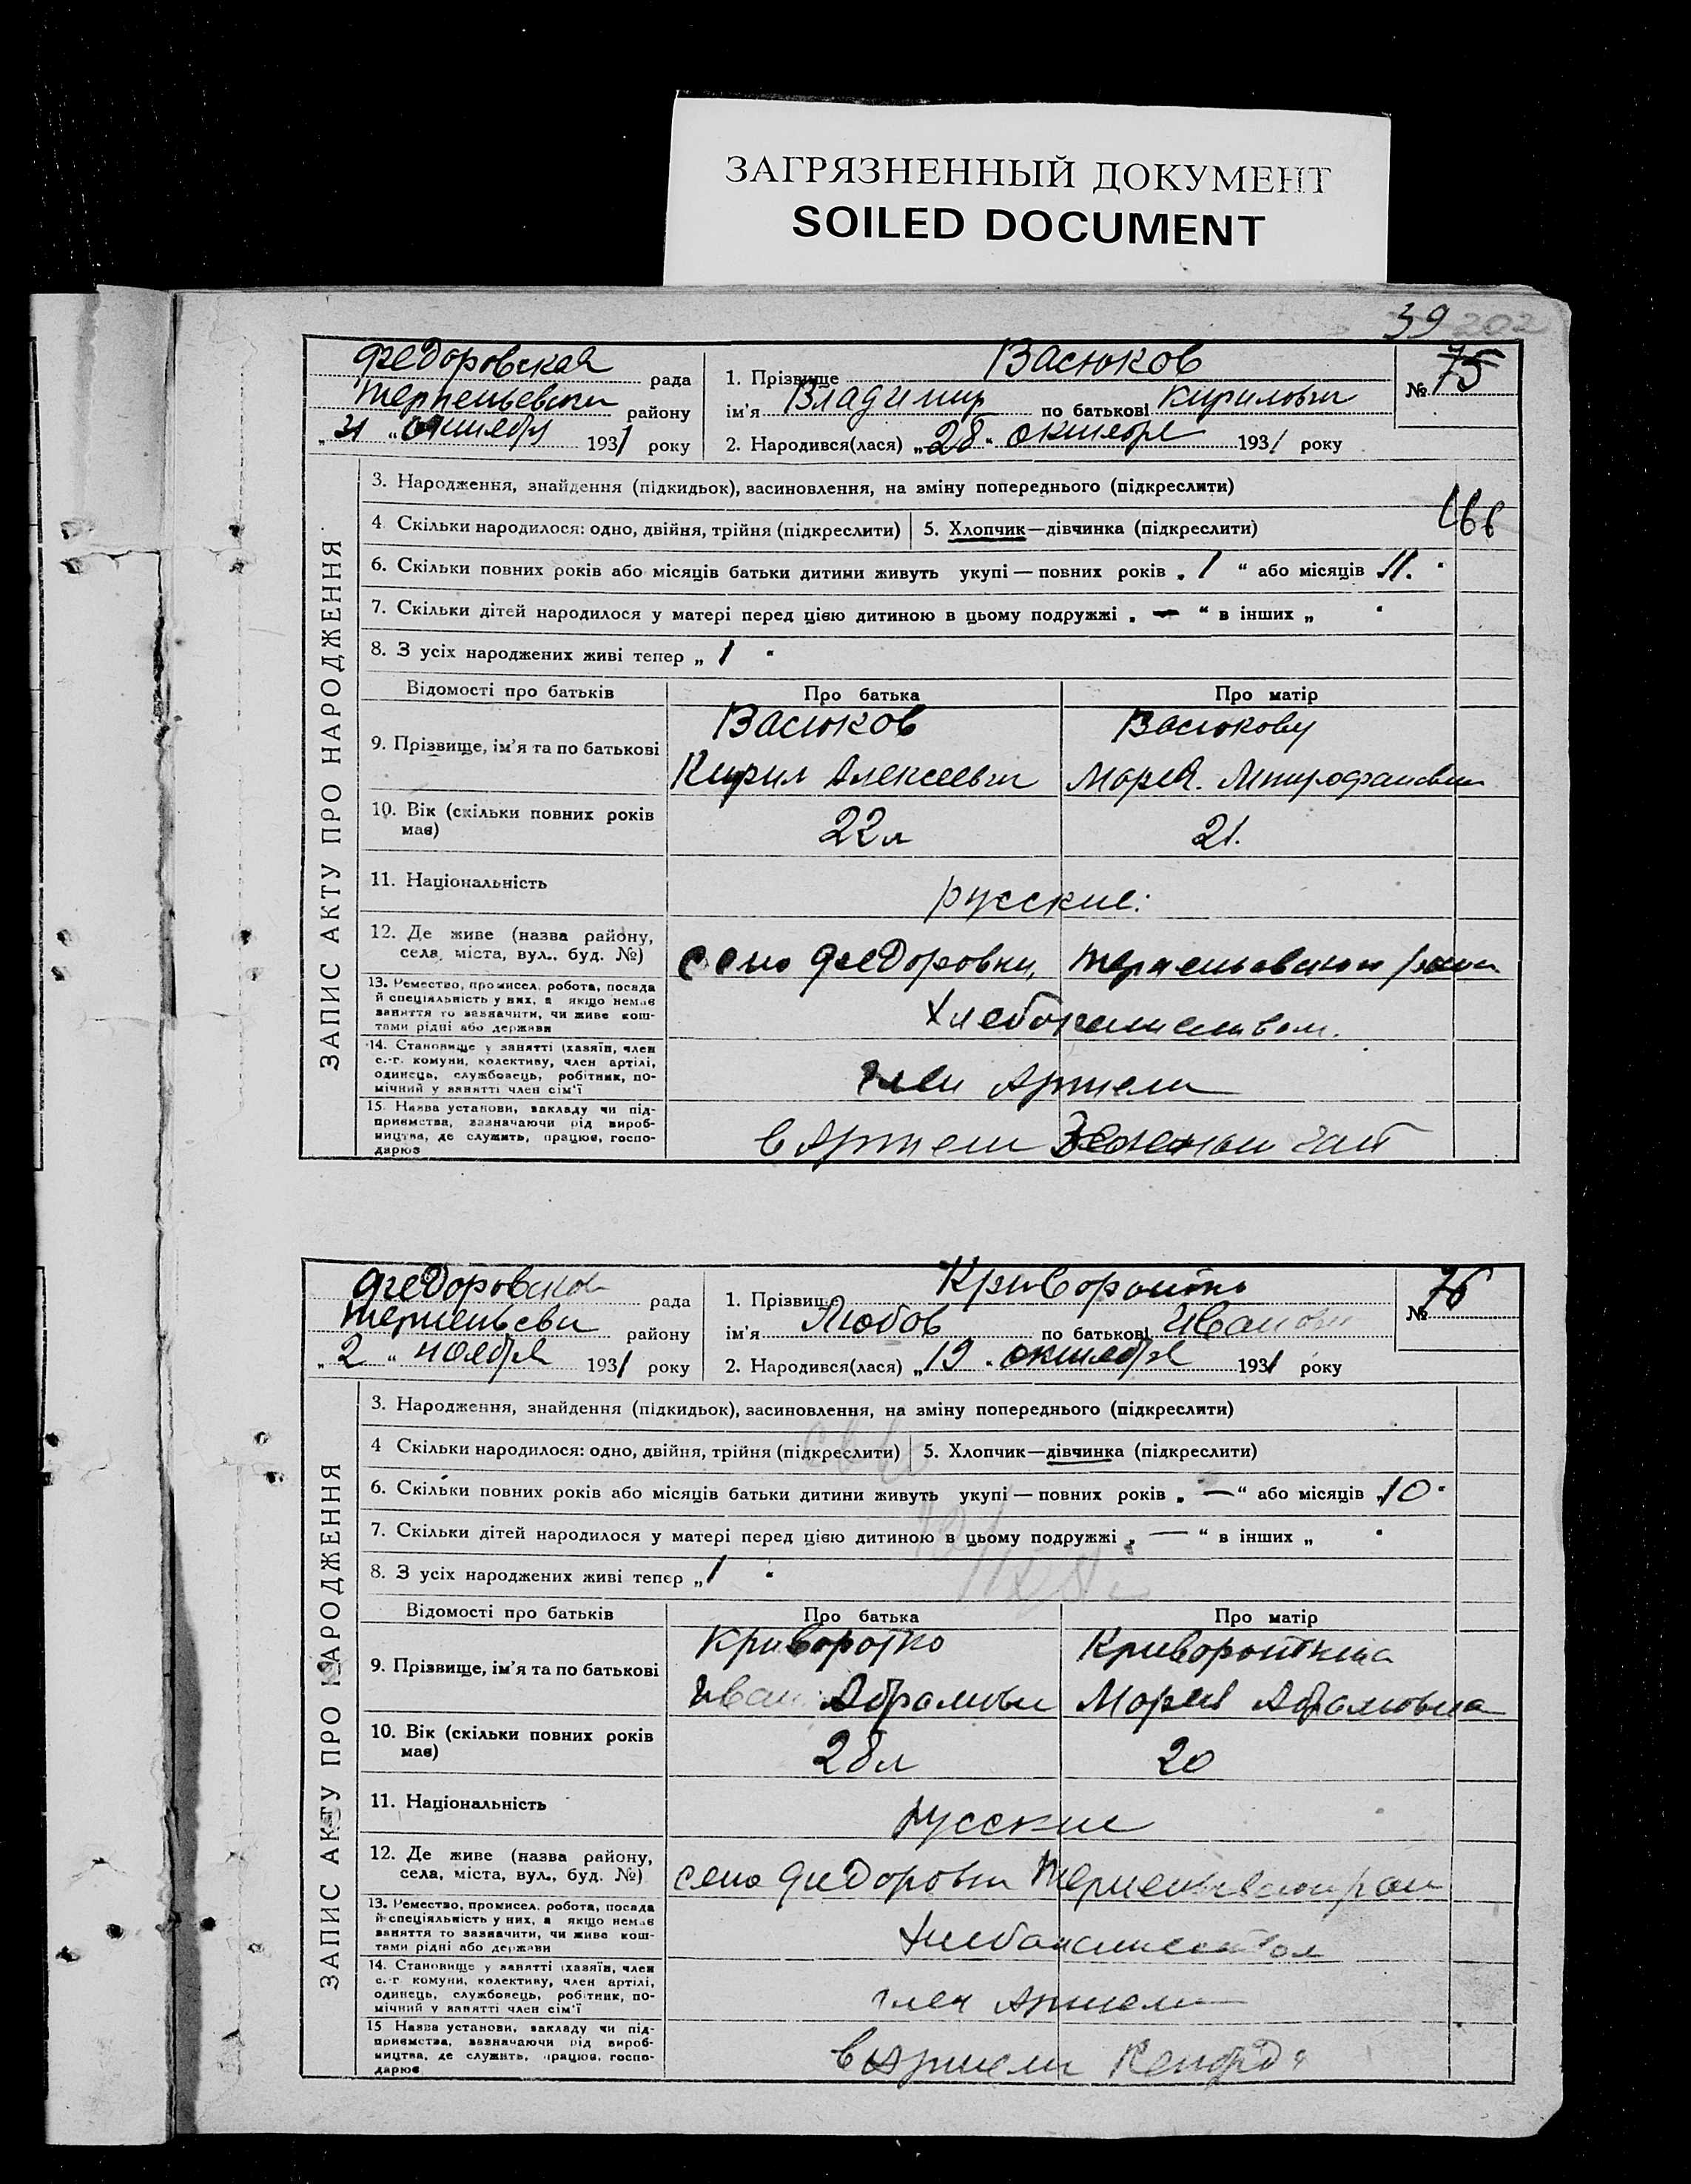 ЗАГРЯЗНЕННЫЙ ДОКУМЕНТ
SOILED DOCUMENT
39 202
Федоровская рада
района
31 октября 1931 року
1. Прізвище Васюков
ім'я Владимир по батькові Кирилович
2. Народився(лася) „28" октября 1931 року
№ 75
ЗАПИС АКТУ ПРО НАРОДЖЕННЯ
3. Народження, знайдення (підкидьок), васиновлення, на зміну попереднього (підкреслити)
4 Скільки народилося: одно, двійня, трійня (підкреслити) 5. Хлопчик—дівчинка (підкреслити)
6. Скільки повних років або місяців батьки дитини живуть укупі — повних років „ 1 “ або місяців 11.
7. Скільки дітей народилося у матері перед цією дитиною в цьому подружжі „ — “ в інших „ “
8. З усіх народжених живі тепер „ 1 “
Відомості про батьків Про батька Про матір
9. Прізвище, ім'я та по батькові
Васюков Васюкову
Кирил Алексеевич Мария. Митрофановна
10. Вік (скільки повних років має) 22 л 21.
11. Національність русские.
12. Де живе (назва району, села, міста, вул., буд. №)
село Федоровки,
13. Ремество, промисел, робота, посада
й спеціяльність у них, а якщо немає
заняття то зазначити, чи живе кош-
тами рідні або держави
Хлебопашеством.
14. Становище у занятті (хазяїн, член
с.-г. комуни, колективу, член артілі,
одинець, службовець, робітник, по-
мічний у занятті член сім'ї
член Артели
15. Назва установи, закладу чи під-
приємства, зазначаючи рід вироб-
ництва, де служить, працює, госпо-
дарює
в Артели
рада
району
„2" ноября 1931 року
1. Прізвище Криворотко
ім'я Любов по батькові
2. Народився(лася) „19" октября 1931 року
№ 76
ЗАПИС АКТУ ПРО НАРОДЖЕННЯ
3. Народження, знайдення (підкидьок), васиновлення, на зміну попереднього (підкреслити)
4 Скільки народилося: одно, двійня, трійня (підкреслити) 5. Хлопчик—дівчинка (підкреслити)
6. Скільки повних років або місяців батьки дитини живуть укупі — повних років „ — “ або місяців 10
7. Скільки дітей народилося у матері перед цією дитиною в цьому подружжі „ — “ в інших „ “
8. З усіх народжених живі тепер „ 1 “
Відомості про батьків Про батька Про матір
9. Прізвище, ім'я та по батькові
Криворотко
Иван Мария Абрамовна
10. Вік (скільки повних років має) 28 л 20
11. Національність русские
12. Де живе (назва району, села, міста, вул., буд. №)
село
13. Ремество, промисел, робота, посада
й спеціяльність у них, а якщо немає
заняття то зазначити, чи живе кош-
тами рідні або держави
14. Становище у занятті (хазяїн, член
с.-г. комуни, колективу, член артілі,
одинець, службовець, робітник, по-
мічний у занятті член сім'ї
член Артели
15 Назва установи, закладу чи під-
приємства, зазначаючи рід вироб-
ництва, де служить, працює, госпо-
дарює
в Артели